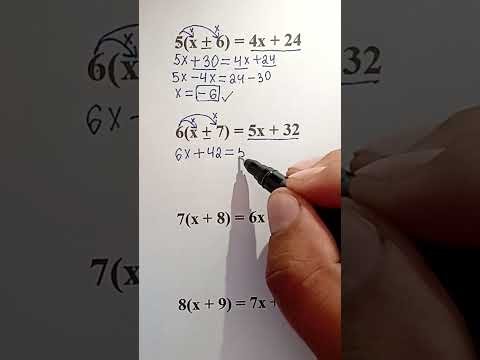 5(x + 6) = 4x + 24
5x + 30 = 4x + 24
5x - 4x = 24 - 30
x = -6 ✓
6(x + 7) = 5x + 32
6x + 42 = 5
7(x + 8) = 6x
8(x + 9) = 7x +